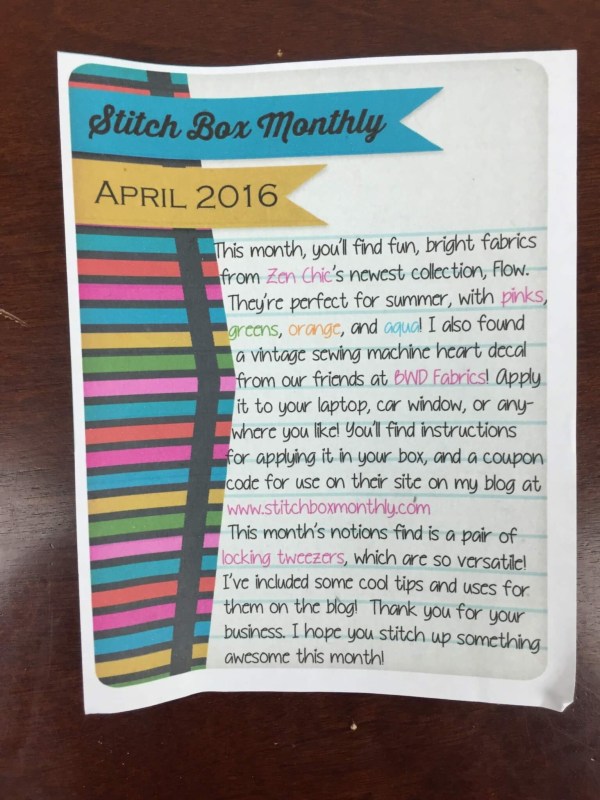 Stitch Box Monthly
APRIL 2016
This month, you'll find fun, bright fabrics
from Zen Chic's newest collection, Flow.
They're perfect for summer, with pinks,
greens, orange, and aqua! I also found
a vintage sewing machine heart decal
from our friends at BWD Fabrics! Apply
it to your laptop, car window, or any-
where you like! You'll find instructions
for applying it in your box, and a coupon
code for use on their site on my blog at
www.stitchboxmonthly.com
This month's notions find is a pair of
locking tweezers, which are so versatile!
I've included some cool tips and uses for
them on the blog! Thank you for your
business. I hope you stitch up something
awesome this month!